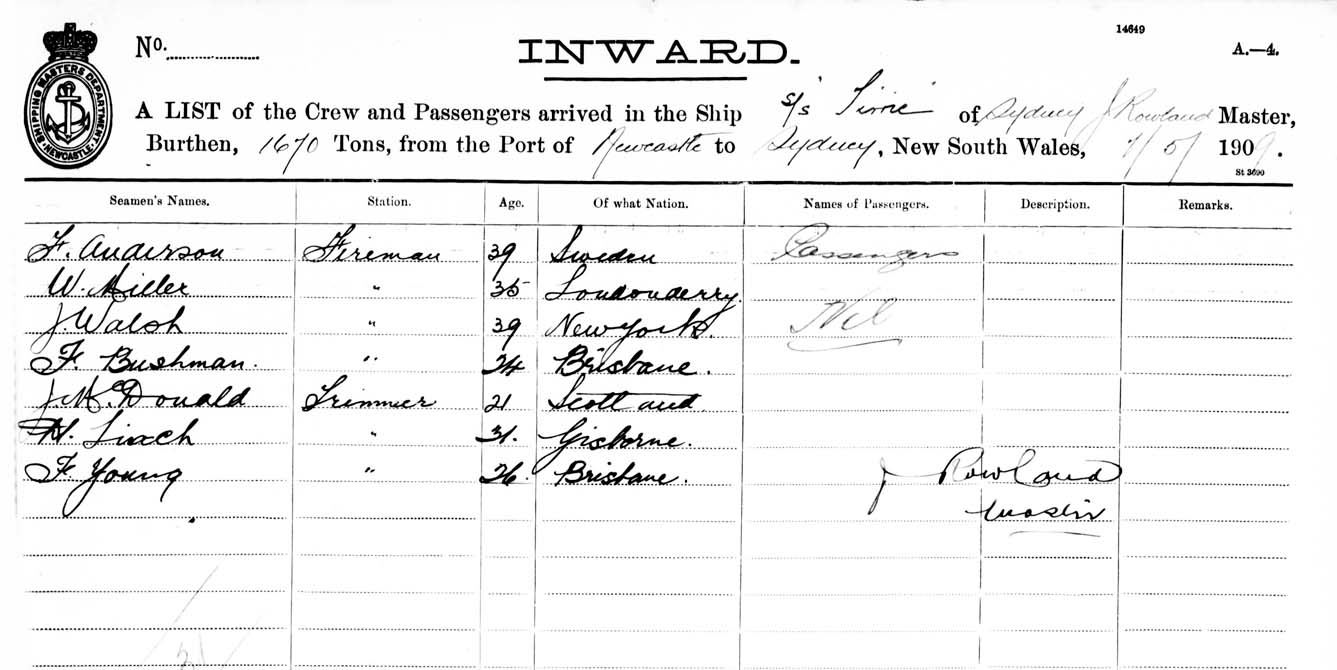 14649
No. INWARD. A.—4.
SHIPPING MASTERS DEPARTMENT NEWCASTLE
A LIST of the Crew and Passengers arrived in the Ship s/s of Sydney J Rowland Master,
Burthen, 1670 Tons, from the Port of Newcastle to Sydney, New South Wales, 7/5/ 1909.
St 3690
Seamen's Names. Station. Age. Of what Nation. Names of Passengers. Description. Remarks.
F. Anderson Fireman 39 Sweden Passengers
W. Miller " 35 Londonderry.
J. Walsh " 39 New York. Nil
F. Bushman. " 24 Brisbane.
J. McDonald Trimmer 21 Scotland
H. " 31. Gisborne.
F. Young " 26. Brisbane.
J Rowland
Master